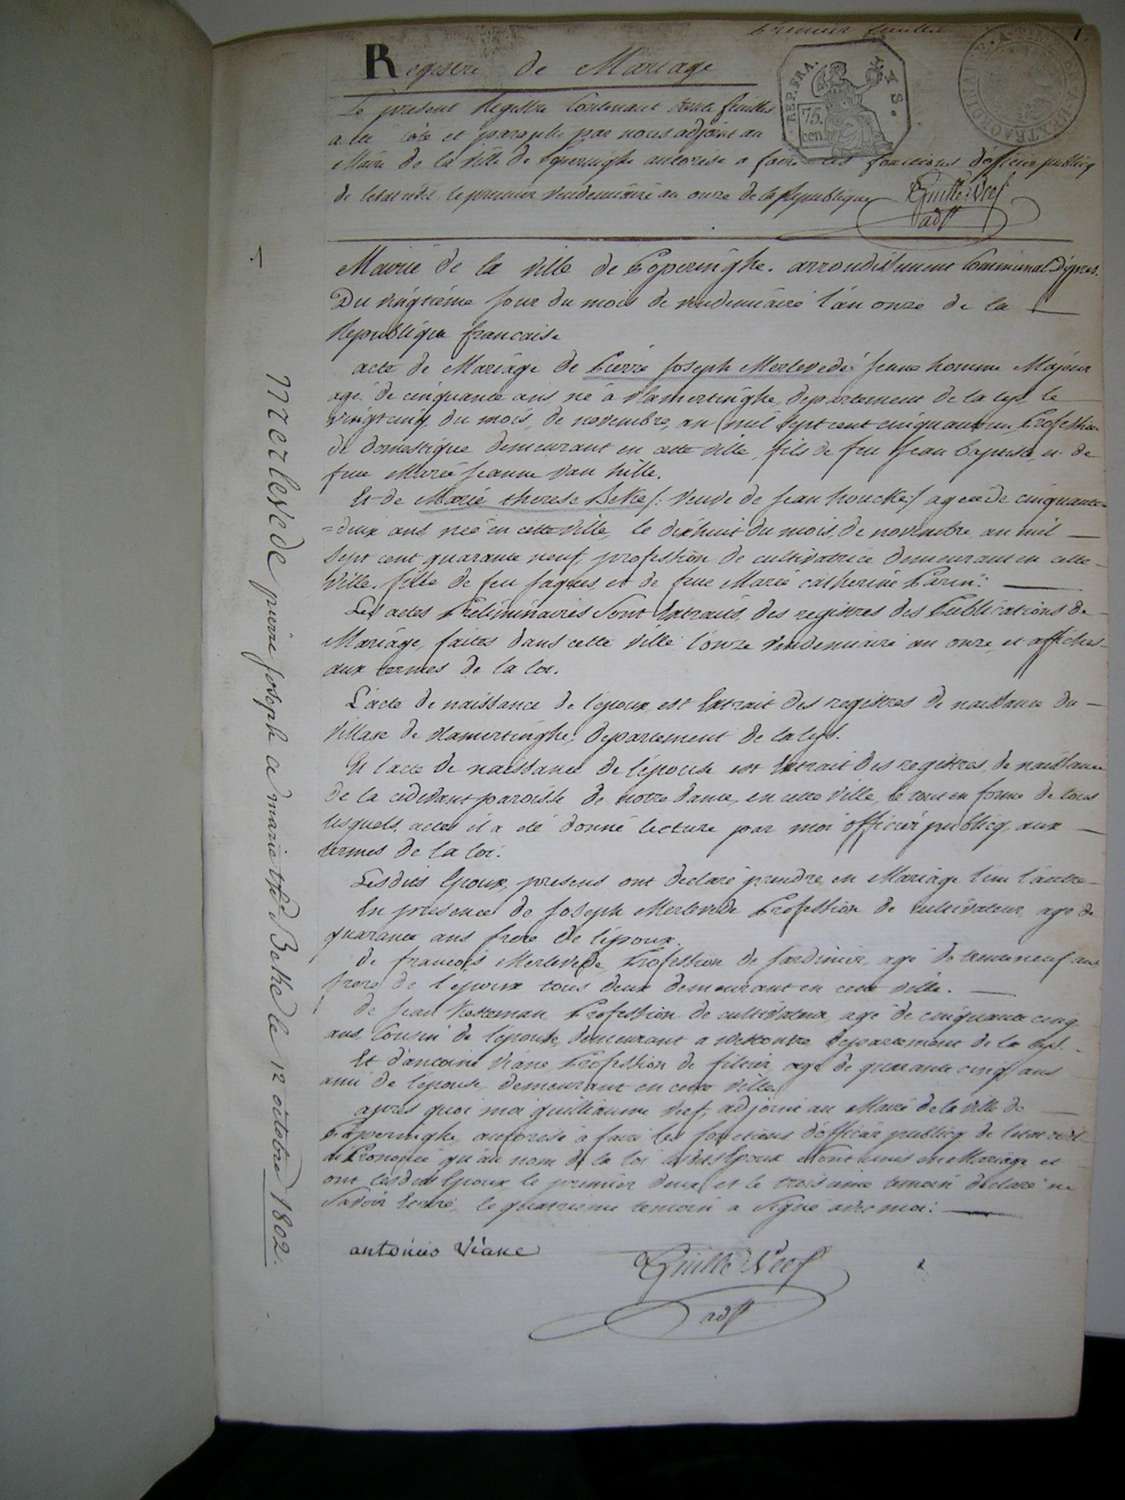 premier feuillet 1
Registre de Mariage
REP. FRA.
75.
cen.
Le présent Registre Contenant trente feuilles
a été coté et paraphé par nous adjoint au
Maire de la ville de Poperinghe autorisé a faire les fonctions d'officier public
de l'etat civil le premier vendemiaire an onze de la Republique
Guille Vref
adjt
Mairie de la ville de Poperinghe. arrondissement Communal d'ypres.
Du vingtième jour du mois de vendemiaire l'an onze de la
Republique francaise
acte de Mariage de Pierre Joseph Merlevede jeune homme Majeur
agé de cinquante ans né à vlamertinghe, departement de la Lys, le
vingtcinq du mois de novembre, an mil sept cent cinquante un, Profession
de domestique demeurant en cette ville, fils de feu Jean Baptiste, et de
feue Marie Jeanne van hille.
Et de Marie therese Betke /: veuve de Jean houcke :/ ageé de cinquante
=deux ans neé en cette ville, le dixhuit du mois de novembre an mil
Sept cent quarante neuf, profession de cultivatrice demeurant en cette
ville fille de feu Jaques et de feue Marie catherine Parin:
Les actes Préliminaires Sont Extraits des registres des Publications de
Mariage, faites dans cette ville l'onze vendemiaire an onze, et affichés
aux termes de la loi.
L'acte de naissance de l'epoux est Extrait des registres de naissance du
village de vlamertinghe, departement de la Lys.
Et l'acte de naissance de l'epouse est Extrait des registres de naissance
de la cidevant paroisse de notre dame, en cette ville, le tout en forme de tous
lesquels actes il a eté donné lecture par moi officier public, aux
termes de la loi.
Lesdits Epoux presens ont declaré prendre en Mariage l'un l'autre
En presence de Joseph Merlevede Profession de cultivateur, agé de
quarante ans frere de l'epoux.
de francois Merlevede, Profession de Jardinier, agé de trenteneuf ans
frere de l'epoux tous deux demeurant en cette ville.
de Jean Profession de cultivateur, agé de cinquante cinq
ans, Cousin de l'epouse, demeurant a westoutre departement de la Lys.
Et d'antoine Viane Profession de fileur, agé de quarante cinq ans
ami de l'epouse, demeurant en cette ville.
apres quoi moi guilliaume Vref, adjoint au Maire de la ville de
Poperinghe, autorisé à faire les fonctions d'officier public de l'etat civil
ai Prononcé qu'au nom de la loi lesdits Epoux Sont unis en Mariage et
ont lesdits Epoux le premier deux, et le troisieme temoin declaré ne
Savoir Ecrire, le quatrieme temoin a Signé avec moi:
antonius Viane
Guille Vref
adjt
Merlevede pierre joseph a marie the Betke le 12 octobre 1802.